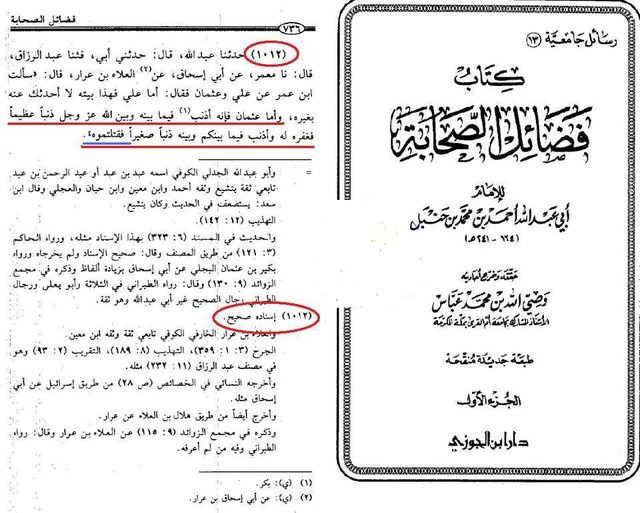 فضائل الصحابة
٧٣٦
(١٠١٢) حدثنا عبد الله، قال: حدثني أبي، قثنا عبد الرزاق،
قال: نا معمر، عن أبي إسحاق، عن(٢) العلاء بن عرار، قال: «سألت
ابن عمر عن علي وعثمان فقال: أما علي فهذا بيته لا أحدثك عنه
بغيره، وأما عثمان فإنه أذنب(١) فيما بينه وبين الله عز وجل ذنباً عظيماً
فغفره له وأذنب فيما بينكم وبينه ذنباً صغيراً فقتلتموه».
= وأبو عبد الله الجدلي الكوفي اسمه عبد بن عبد أو عبد الرحمن بن عبد
تابعي ثقة يتشيع وثقه أحمد وابن معين وابن حبان والعجلي وقال ابن
سعد: يستضعف في الحديث وكان يتشيع.
التهذيب (١٢: ١٤٢).
والحديث في المسند (٦: ٣٢٣) بهذا الإسناد مثله، ورواه الحاكم
(٣: ١٢١) من طريق المصنف وقال: صحيح الإسناد ولم يخرجاه ورواه
بكير بن عثمان البجلي عن أبي إسحاق بزيادة ألفاظ وذكره في مجمع
الزوائد (٩: ١٣٠) وقال: رواه الطبراني في الثلاثة وأبو يعلى ورجال
الطبراني رجال الصحيح غير أبي عبد الله وهو ثقة.
(١٠١٢) إسناده صحيح.
والعلاء بن عرار الخارفي الكوفي تابعي ثقة وثقه ابن معين.
الجرح (٣: ١: ٣٥٩)، التهذيب (٨: ١٨٩)، التقريب (٢: ٩٣) وهو
في مصنف عبد الرزاق (١١: ٢٣٢) مثله.
وأخرجه النسائي في الخصائص (ص ٢٨) من طريق إسرائيل عن أبي
إسحاق عنه.
وأخرج أيضاً من طريق هلال بن العلاء عن عرار.
وذكره في مجمع الزوائد (٩: ١١٥) عن العلاء بن عرار وقال: رواه
الطبراني وفيه من لم أعرفه.
(١) (ي): بكر.
(٢) (ي): عن أبي إسحاق بن عرار.
رسائل جامعية (١٣)
كتاب
فضائل الصحابة
للإمام
أبي عبد الله أحمد بن محمد بن حنبل
(١٦٤-٢٤١هـ)
حققه وخرج أحاديثه
وصي الله بن محمد عباس
الأستاذ المشارك بجامعة أم القرى بمكة المكرمة
طبعة جديدة منقحة
الجزء الأول
دار ابن الجوزي